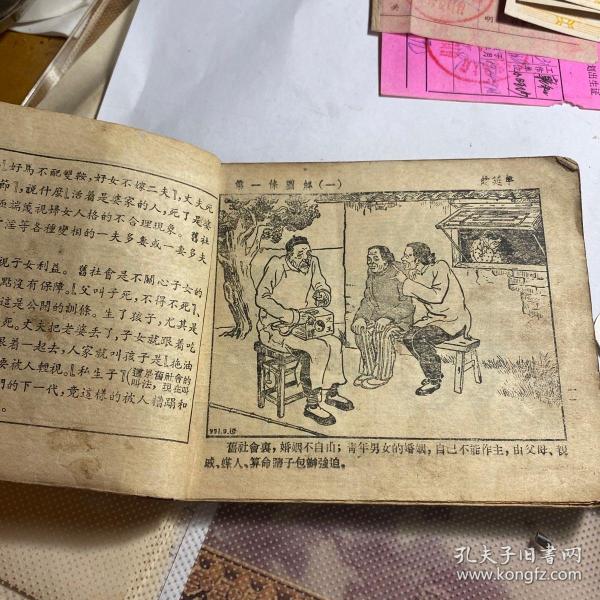 第一條圖解(一)
舊社會裏，婚姻不自由；靑年男女的婚姻，自己不能作主，由父母、親
戚、媒人、算命瞎子包辦強迫。
「好馬不配雙鞍，好女不嫁二夫」，丈夫死
節」，說什麼「活着是婆家的人，死了是婆
極端蔑視婦女人格的不合理現象。舊社
等各種變相的一夫多妻或一妻多夫
視子女利益。舊社會是不關心子女的
點沒有保障。「父叫子死，不得不死」、
這是公開的訓條。生了孩子，尤其是
死。丈夫把老婆丢了，子女就跟着吃
跟着一起去，人家就叫孩子是「拖油
要被人輕視。「私生子」(這是舊社會的
叫法，現在叫
們的下一代，竟這樣的被人糟蹋和
孔夫子旧书网
www.kongfz.com